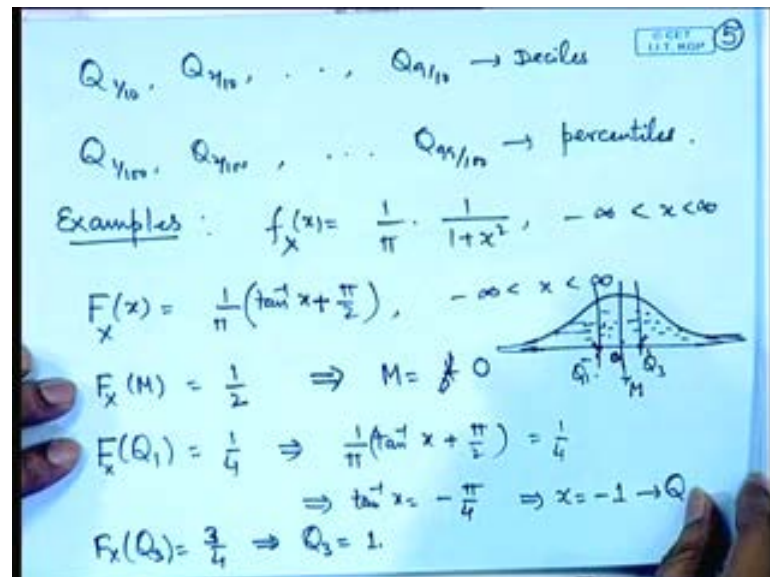 © CET
I.I.T. KGP
5
Q_{1/10}, Q_{2/10}, . . . , Q_{9/10} → Deciles
Q_{1/100}, Q_{2/100}, . . . Q_{99/100} → percentiles.
Examples : f_X(x) = 1/π · 1/(1+x²), -∞ < x < ∞
F_X(x) = 1/π (tan⁻¹ x + π/2), -∞ < x < ∞
F_X(M) = 1/2 ⇒ M = 0
Q₁ 0 M Q₃
F_X(Q₁) = 1/4 ⇒ 1/π (tan⁻¹ x + π/2) = 1/4
⇒ tan⁻¹ x = -π/4 ⇒ x = -1 → Q
F_X(Q₃) = 3/4 ⇒ Q₃ = 1.